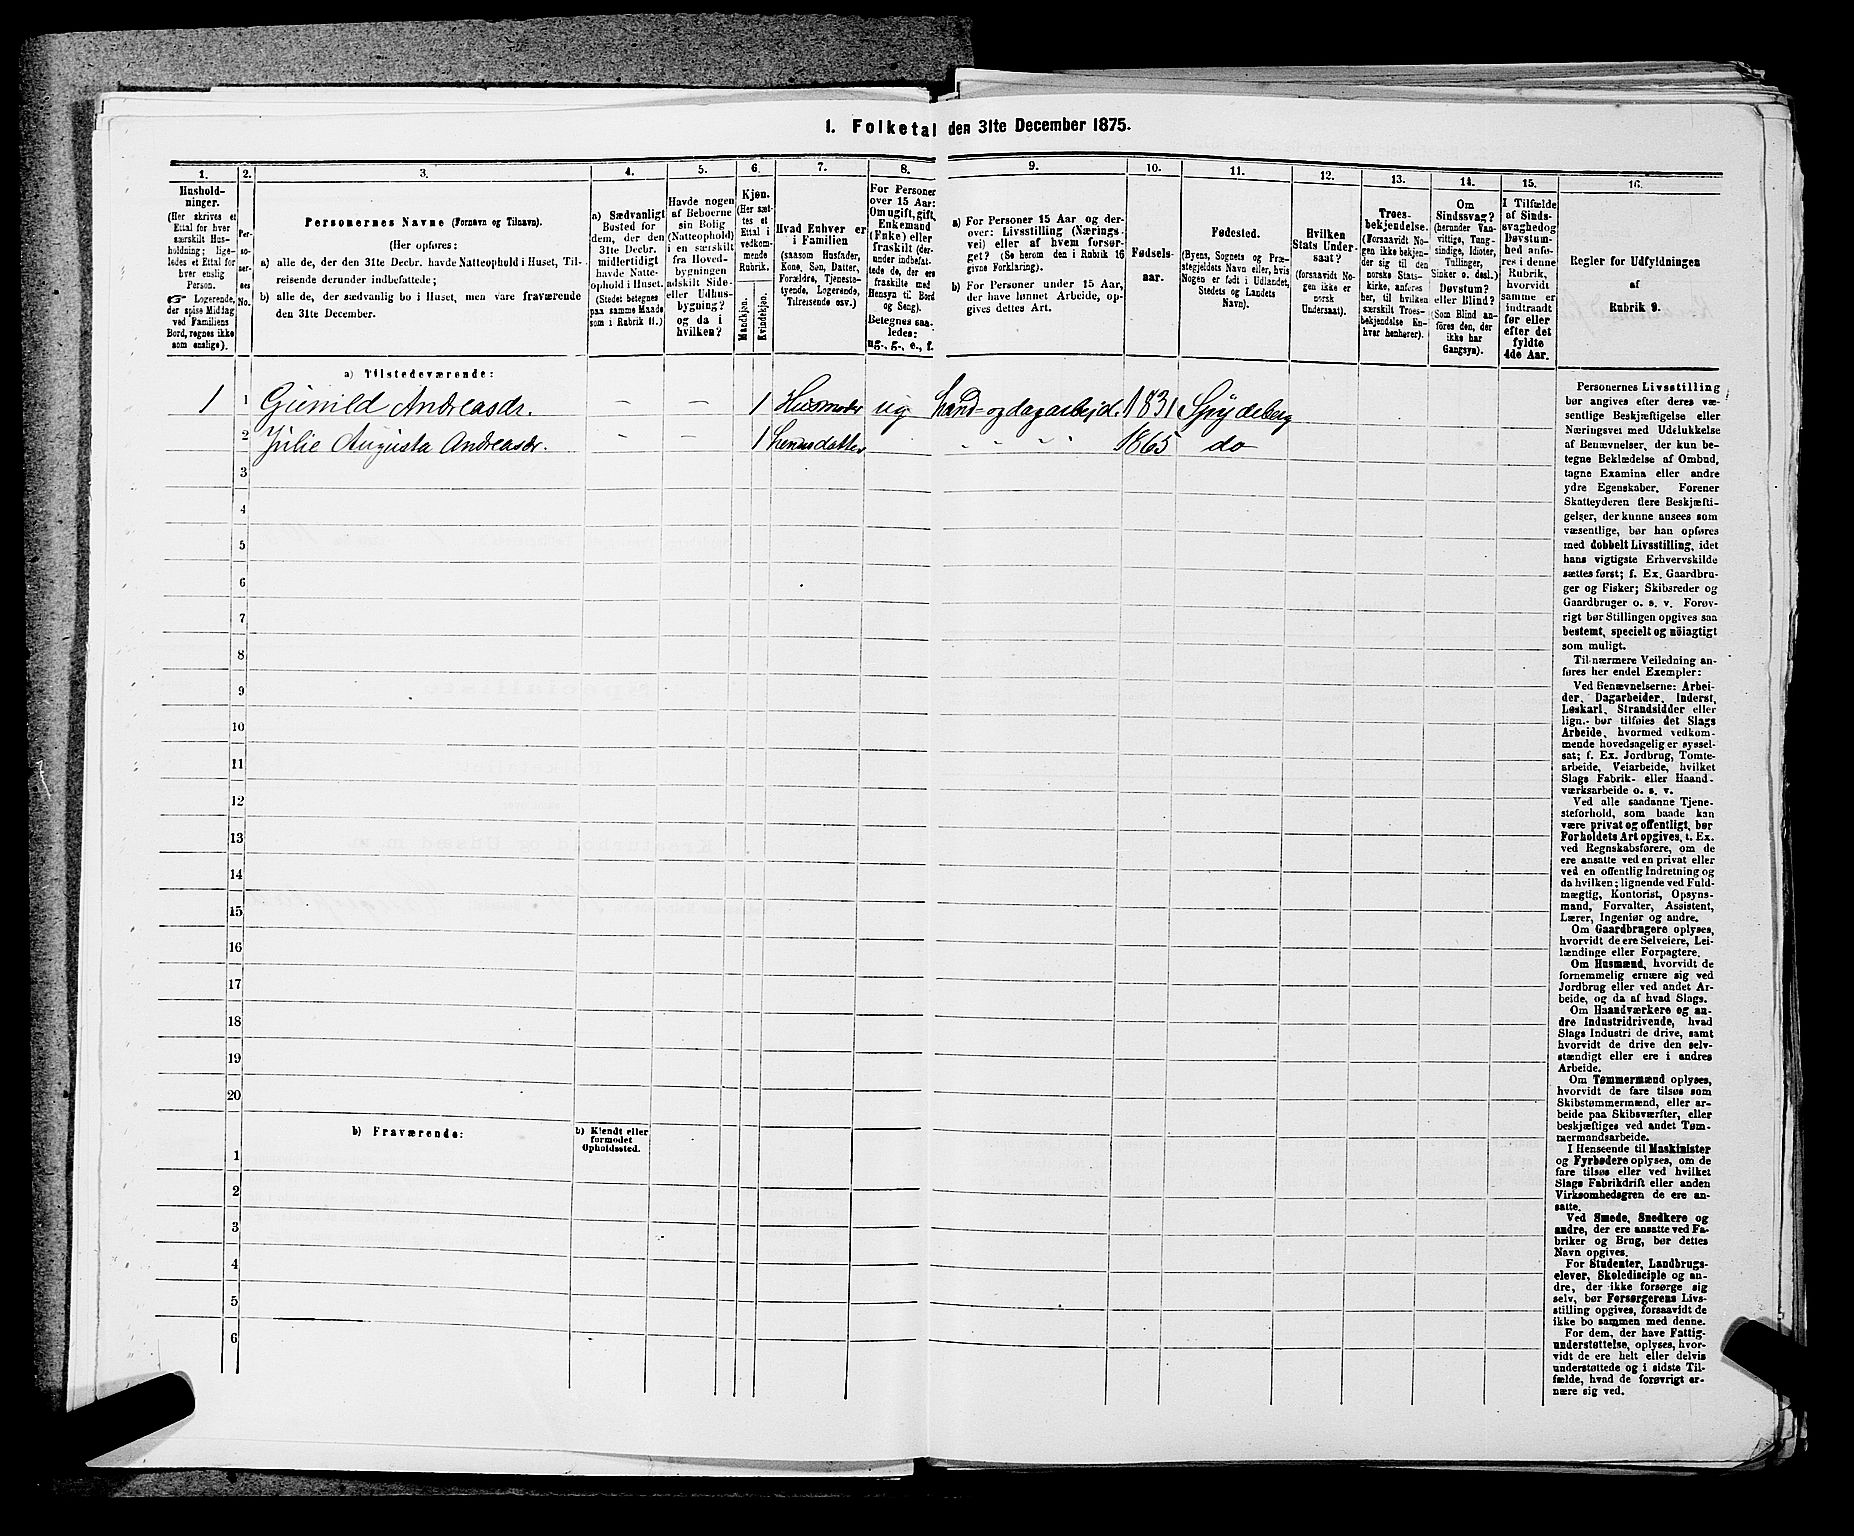 1. Folketal den 31te December 1875.
1.
Hushold-
ninger.
(Her skrives et
Ettal for hver
særskilt Hus-
holdning; lige-
ledes et Ettal for
hver enslig
Person.
Logerende,
der spise Middag
ved Familiens
Bord, regnes ikke
som enslige).
2.
Per-
so-
ner-
nes
No.
3.
Personernes Navne (Fornavn og Tilnavn).
(Her opføres:
a) alle de, der den 31te Decbr. havde Natteophold i Huset, Til-
reisende derunder indbefattede;
b) alle de, der sædvanlig bo i Huset, men vare fraværende
den 31te December.
4.
a) Sædvanligt
Bosted for
dem, der den
31te Decbr.
midlertidigt
havde Natte-
ophold i Huset.
(Stedet betegnes
paa samme Maade
som i Rubrik 11.)
5.
Havde nogen
af Beboerne
sin Bolig
(Natteophold)
i en særskilt
fra Hoved-
bygningen
adskilt Side-
eller Udhus-
bygning?
og da i
hvilken?
6.
Kjøn.
(Her sæt-
tes et
Ettal i
vedkom-
mende
Rubrik.
Mandkjøn.
Kvindekjøn.
7.
Hvad Enhver er
i Familien
(saasom Husfader,
Kone, Søn, Datter,
Forældre, Tjeneste-
tyende, Logerende,
Tilreisende osv.)
8.
For Personer
over 15 Aar:
Om ugift, gift,
Enkemand
(Enke) eller
fraskilt (der-
under indbefat-
tede de, der ere
fraskilte med
Hensyn til Bord
og Seng).
Betegnes saa-
ledes:
ug., g., e., f.
9.
a) For Personer 15 Aar og der-
over: Livsstilling (Nærings-
vei) eller af hvem forsør-
get? (Se herom den i Rubrik 16
givne Forklaring).
b) For Personer under 15 Aar,
der have lønnet Arbeide, op-
gives dettes Art.
10.
Fødsels-
aar.
11.
Fødested.
(Byens, Sognets og Præ-
stegjeldets Navn eller, hvis
Nogen er født i Udlandet,
Stedets og Landets
Navn).
12.
Hvilken
Stats Under-
saat?
(forsaavidt No-
gen ikke er
norsk
Undersaat).
13.
Troes-
bekjendelse.
(Forsaavidt No-
gen ikke bekjen-
der sig til den
norske Stats-
kirke, anføres
her, til hvilken
særskilt Troes-
bekjendelse En-
hver henhører).
14.
Om
Sindssvag?
(herunder Van-
vittige, Tung-
sindige, Idioter,
Tullinger,
Sinker o. desl.)
Døvstum?
eller Blind?
(Som Blind an-
føres den, der
ikke har
Gangsyn).
15.
I Tilfælde
af Sinds-
svaghed og
Døvstum-
hed anfø-
res i denne
Rubrik,
hvorvidt
samme er
indtraadt
før eller
efter det
fyldte
4de Aar.
16.
Regler for Udfyldningen
af
Rubrik 9.
a) Tilstedeværende:
1 1 Gunild Andreasdr. - - 1 Husmoder ug Land- og dagarbejd. 1831 Spydeberg
2 Julie Augusta Andreasdr. - - 1 hennes datter - - - - 1865 do
3
4
5
6
7
8
9
10
11
12
13
14
15
16
17
18
19
20
b) Fraværende:
b) Kjendt eller
formodet
Opholdssted.
1
2
3
4
5
6
Personernes Livsstilling
bør angives efter deres væ-
sentlige Beskjæftigelse eller
Næringsvei med Udelukkelse
af Benævnelser, der kun be-
tegne Beklædelse af Ombud,
tagne Examina eller andre
ydre Egenskaber. Forener
Skatteyderen flere Beskjæfti-
gelser, der kunne ansees som
væsentlige, bør han opføres
med dobbelt Livsstilling, idet
hans vigtigste Erhvervskilde
sættes først; f. Ex. Gaardbru-
ger og Fisker; Skibsreder og
Gaardbruger o. s. v. Forøv-
rigt bør Stillingen opgives saa
bestemt, specielt og nöiagtigt
som muligt.
Til nærmere Veiledning an-
føres her endel Exempler:
Ved Benævnelserne: Arbei-
der, Dagarbeider, Inderst,
Løskarl, Strandsidder eller
lign. bør tilføies det Slags
Arbeide, hvormed vedkom-
mende hovedsagelig er syssel-
sat; f. Ex. Jordbrug, Tomte-
arbeide, Veiarbeide, hvilket
Slags Fabrik- eller Haand-
værksarbeide o. s. v.
Ved alle saadanne Tjene-
steforhold, som baade kan
være privat og offentligt, bør
Forholdets Art opgives, t. Ex.
ved Regnskabsførere, om de
ere ansatte ved en privat eller
ved en offentlig Indretning og
da hvilken; lignende ved Fuld-
mægtig, Kontorist, Opsyns-
mand, Forvalter, Assistent,
Lærer, Ingeniør og andre.
Om Gaardbrugere oplyses,
hvorvidt de ere Selveiere, Lei-
lændinge eller Forpagtere.
Om Husmænd, hvorvidt de
fornemmelig ernære sig ved
Jordbrug eller ved andet Ar-
beide, og da af hvad Slags.
Om Haandværkere og an-
dre Industridrivende, hvad
Slags Industri de drive, samt
hvorvidt de drive den selv-
stændigt eller ere i andres
Arbeide.
Om Tømmermænd oplyses,
hvorvidt de fare tilsøs som
Skibstømmermænd, eller ar-
beide paa Skibsværfter, eller
beskjæftiges ved andet Tøm-
mermandsarbeide.
I Henseende til Maskinister
og Fyrbødere oplyses, om de
fare tilsøs eller ved hvilket
Slags Fabrikdrift eller anden
Virksomhedsgren de ere an-
satte.
Ved Smede, Snedkere og
andre, der ere ansatte ved Fa-
briker og Brug, bør dettes
Navn opgives.
For Studenter, Landbrugs-
elever, Skoledisciple og an-
dre, der ikke forsørge sig
selv, bør Forsørgerens Livs-
stilling opgives, forsaavidt de
ikke bo sammen med denne.
For dem, der have Fattig-
understøttelse, oplyses, hvor-
vidt de ere helt eller delvis
understøttede og i sidste Til-
fælde, hvad de forøvrigt er-
nære sig ved.